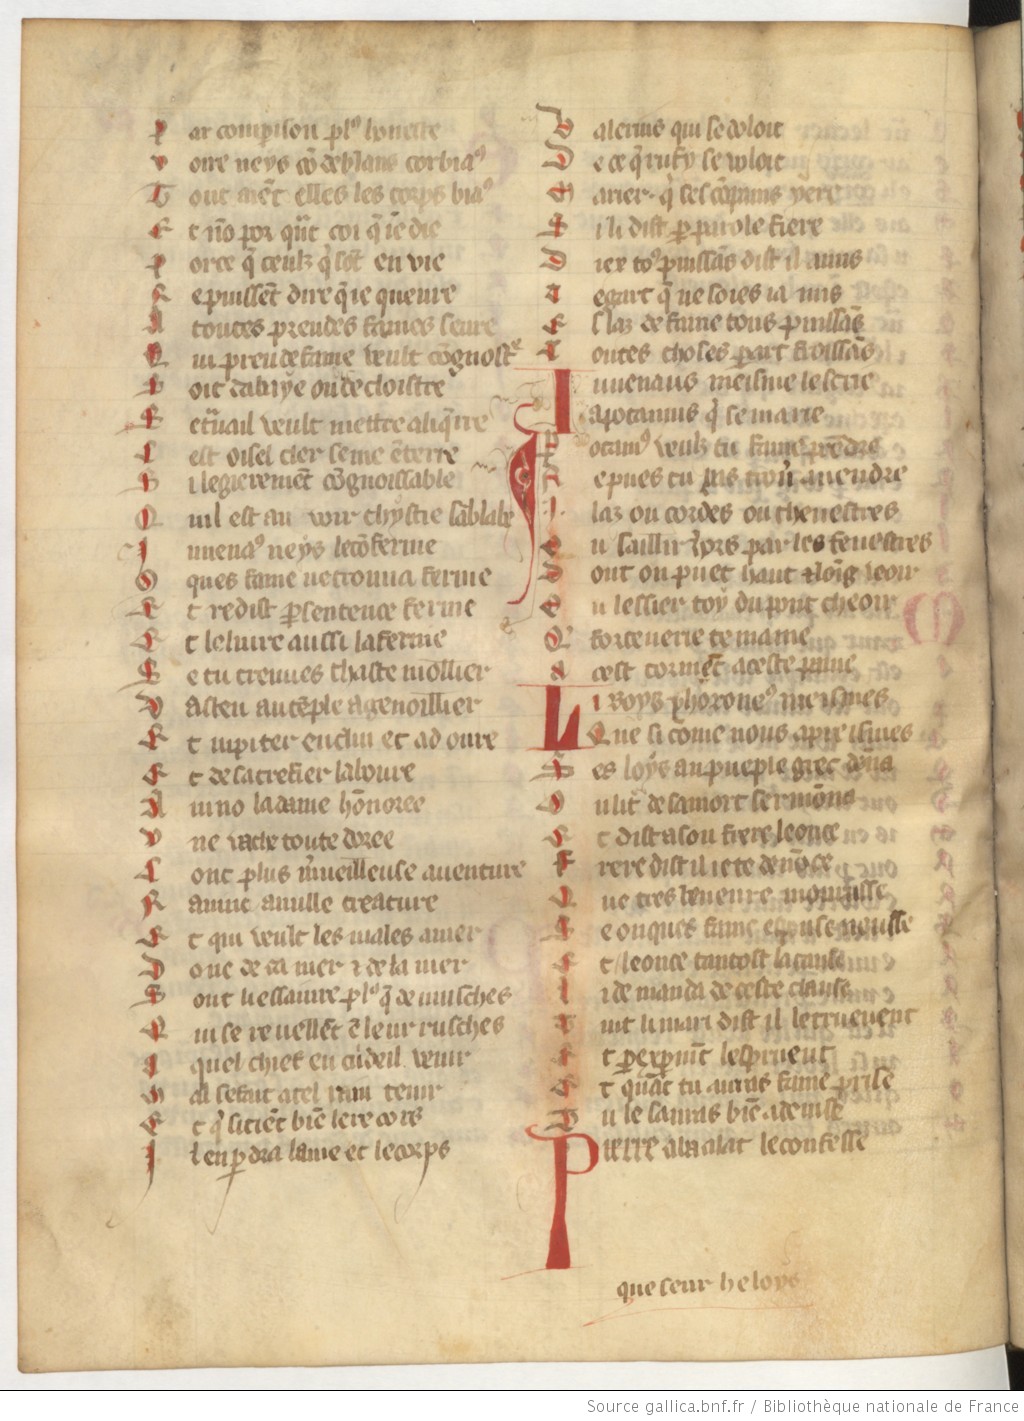 Par compaison pl᷒ honeste
Voire neys cō de blans corbiaꝰ
Tout aiēt elles les corps biaꝰ
Et nō por quāt coi q̄ ie die
Porce q̄ ceulz q̄ sōt en vie
Ne puissēt dire q̄ ie queure
A toutes preudes fames seure
Qui preudefame veult cōgnoistᵉ
Soit dabaye ou de cloistre
Se trauail veult mettre a li q̄rre
Cest oisel cler seme ē terre
Si legierement cōgnoissable
Quil est au noir chysne sāblable
Iuuenaꝰ neys le cōferme
Ques fame ne trouua ferme
Et redist p sentence ferme
Et le liure aussi laferme
Se tu treuues chaste moillier
Va sten au tēple agenoillier
Et iupiter enclin et adoure
Et de sacrefier laboure
A iuno la dame hōnoree
Vne vache toute doree
Conc plus mūeilleuse auenture
Ramine a nulle creature
Et qui veult les males amer
Dont de ca mer ⁊ de la mer
Sont li essaime pl᷒ q̄ de musches
Qui se recueillēt ē leur rusches
A quel chief en cuideil venir
Mal se fait a tel raim tenir
Et q̄ si tiēt biē le recors
Il en pdra lame et le corps
Valerius qui se doloit
De ce q̄ rufin se voloit
Marier. q̄ ses cōpains yere
Si li dist p parole fiere
Diex toꝰ puissās dist il amis
A egart q̄ ne soies ia mis
Es laz de fame tous puissās
Toutes choses part froissās
Iuuenaus meisme lescrie
A pocamus q̄ se marie
Pocamꝰ veulz tu fame prēdre
Ne pues tu pas trouū a vendre
Ilaz ou cordes ou cheuestres
Ou saillir hors par les fenestres
Dont on puet haut ⁊ loīg veoir
Ou lessier toy du pont cheoir
Q forcenerie te maine
A cest tormēt a ceste paine
Li Roys phoroneꝰ meismes
Que si come nous apreismes
Ses loys au pueple grec dōna
Ou lit de sa mort sermōna
Et dist a son frere leonce
Frere dist il ie te denōce
Que tres beneure mourusse
Se onques fame espouse neusse
Et leonce tantost la cause
Li demanda de ceste clause
Tuit li mari dist il le treuuent
Et p experimēt lespreuuent
Et quāt tu auras fame prise
Tu le sauras biē a deuise
Pierre abaalat le confesse
que seur heloys